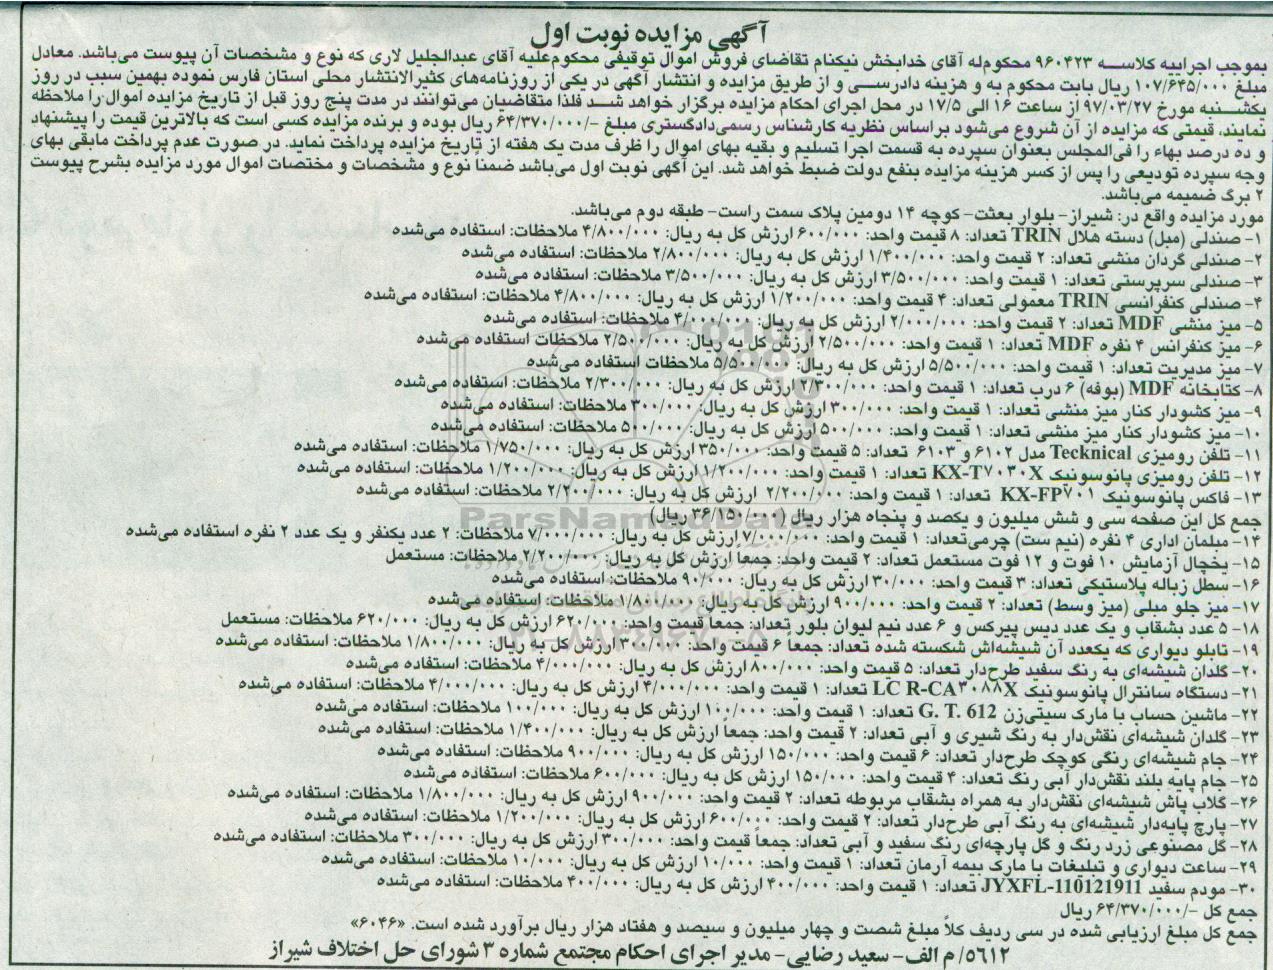 آگهی مزایده نوبت اول
بموجب اجراییه کلاسه ۹۶۰۴۲۳ محکوم‌له آقای خدابخش نیکنام تقاضای فروش اموال توقیفی محکوم‌علیه آقای عبدالجلیل لاری که نوع و مشخصات آن پیوست می‌باشد. معادل
مبلغ ۱۰۷/۶۴۵/۰۰۰ ریال بابت محکوم به و هزینه دادرسی و از طریق مزایده و انتشار آگهی در یکی از روزنامه‌های کثیرالانتشار محلی استان فارس نموده بهمین سبب در روز
یکشنبه مورخ ۹۷/۰۳/۲۷ از ساعت ۱۶ الی ۱۷/۵ در محل اجرای احکام مزایده برگزار خواهد شد فلذا متقاضیان می‌توانند در مدت پنج روز قبل از تاریخ مزایده اموال را ملاحظه
نمایند. قیمتی که مزایده از آن شروع می‌شود براساس نظریه کارشناس رسمی‌دادگستری مبلغ -/۶۴/۳۷۰/۰۰۰ ریال بوده و برنده مزایده کسی است که بالاترین قیمت را پیشنهاد
و ده درصد بهاء را فی‌المجلس بعنوان سپرده به قسمت اجرا تسلیم و بقیه بهای اموال را ظرف مدت یک هفته از تاریخ مزایده پرداخت نماید. در صورت عدم پرداخت مابقی بهای
وجه سپرده تودیعی را پس از کسر هزینه مزایده بنفع دولت ضبط خواهد شد. این آگهی نوبت اول می‌باشد ضمنا نوع و مشخصات و مختصات اموال مورد مزایده بشرح پیوست
۲ برگ ضمیمه می‌باشد.
مورد مزایده واقع در: شیراز- بلوار بعثت- کوچه ۱۴ دومین پلاک سمت راست- طبقه دوم می‌باشد.
۱- صندلی (مبل) دسته هلال TRIN تعداد: ۸ قیمت واحد: ۶۰۰/۰۰۰ ارزش کل به ریال: ۴/۸۰۰/۰۰۰ ملاحظات: استفاده می‌شده
۲- صندلی گردان منشی تعداد: ۲ قیمت واحد: ۱/۴۰۰/۰۰۰ ارزش کل به ریال: ۲/۸۰۰/۰۰۰ ملاحظات: استفاده می‌شده
۳- صندلی سرپرستی تعداد: ۱ قیمت واحد: ۳/۵۰۰/۰۰۰ ارزش کل به ریال: ۳/۵۰۰/۰۰۰ ملاحظات: استفاده می‌شده
۴- صندلی کنفرانسی TRIN معمولی تعداد: ۴ قیمت واحد: ۱/۲۰۰/۰۰۰ ارزش کل به ریال: ۴/۸۰۰/۰۰۰ ملاحظات: استفاده می‌شده
۵- میز منشی MDF تعداد: ۲ قیمت واحد: ۲/۰۰۰/۰۰۰ ارزش کل به ریال: ۴/۰۰۰/۰۰۰ ملاحظات: استفاده می‌شده
۶- میز کنفرانس ۴ نفره MDF تعداد: ۱ قیمت واحد: ۲/۵۰۰/۰۰۰ ارزش کل به ریال: ۲/۵۰۰/۰۰۰ ملاحظات استفاده می‌شده
۷- میز مدیریت تعداد: ۱ قیمت واحد: ۵/۵۰۰/۰۰۰ ارزش کل به ریال: ۵/۵۰۰/۰۰۰ ملاحظات استفاده می‌شده
۸- کتابخانه MDF (بوفه) ۶ درب تعداد: ۱ قیمت واحد: ۲/۳۰۰/۰۰۰ ارزش کل به ریال: ۲/۳۰۰/۰۰۰ ملاحظات: استفاده می‌شده
۹- میز کشودار کنار میز منشی تعداد: ۱ قیمت واحد: ۳۰۰/۰۰۰ ارزش کل به ریال: ۳۰۰/۰۰۰ ملاحظات: استفاده می‌شده
۱۰- میز کشودار کنار میز منشی تعداد: ۱ قیمت واحد: ۵۰۰/۰۰۰ ارزش کل به ریال: ۵۰۰/۰۰۰ ملاحظات: استفاده می‌شده
۱۱- تلفن رومیزی Tecknical مدل ۶۱۰۲ و ۶۱۰۳ تعداد: ۵ قیمت واحد: ۳۵۰/۰۰۰ ارزش کل به ریال: ۱/۷۵۰/۰۰۰ ملاحظات: استفاده می‌شده
۱۲- تلفن رومیزی پانوسونیک KX-T۷۰۳۰X تعداد: ۱ قیمت واحد: ۱/۲۰۰/۰۰۰ ارزش کل به ریال: ۱/۲۰۰/۰۰۰ ملاحظات: استفاده می‌شده
۱۳- فاکس پانوسونیک KX-FP۷۰۱ تعداد: ۱ قیمت واحد: ۲/۲۰۰/۰۰۰ ارزش کل به ریال: ۲/۲۰۰/۰۰۰ ملاحظات: استفاده می‌شده
جمع کل این صفحه سی و شش میلیون و یکصد و پنجاه هزار ریال (۳۶/۱۵۰/۰۰۰ ریال)
ParsNamadData
۱۴- مبلمان اداری ۴ نفره (نیم ست) چرمی‌تعداد: ۱ قیمت واحد: ۷/۰۰۰/۰۰۰ ارزش کل به ریال: ۷/۰۰۰/۰۰۰ ملاحظات: ۲ عدد یکنفر و یک عدد ۲ نفره استفاده می‌شده
۱۵- یخچال آزمایش ۱۰ فوت و ۱۲ فوت مستعمل تعداد: ۲ قیمت واحد: جمعاً ارزش کل به ریال: ۲/۲۰۰/۰۰۰ ملاحظات: مستعمل
۱۶- سطل زباله پلاستیکی تعداد: ۳ قیمت واحد: ۳۰/۰۰۰ ارزش کل به ریال: ۹۰/۰۰۰ ملاحظات: استفاده می‌شده
۱۷- میز جلو مبلی (میز وسط) تعداد: ۲ قیمت واحد: ۹۰۰/۰۰۰ ارزش کل به ریال: ۱/۸۰۰/۰۰۰ ملاحظات: استفاده می‌شده
۱۸- ۵ عدد بشقاب و یک عدد دیس پیرکس و ۶ عدد نیم لیوان بلور تعداد: جمعاً قیمت واحد: ۶۲۰/۰۰۰ ارزش کل به ریال: ۶۲۰/۰۰۰ ملاحظات: مستعمل
۱۹- تابلو دیواری که یکعدد آن شیشه‌اش شکسته شده تعداد: جمعاً ۶ قیمت واحد: ۳۰۰/۰۰۰ ارزش کل به ریال: ۱/۸۰۰/۰۰۰ ملاحظات: استفاده می‌شده
۲۰- گلدان شیشه‌ای به رنگ سفید طرح‌دار تعداد: ۵ قیمت واحد: ۸۰۰/۰۰۰ ارزش کل به ریال: ۴/۰۰۰/۰۰۰ ملاحظات: استفاده می‌شده
۲۱- دستگاه سانترال پانوسونیک LC R-CA۳۰۸۸X تعداد: ۱ قیمت واحد: ۴/۰۰۰/۰۰۰ ارزش کل به ریال: ۴/۰۰۰/۰۰۰ ملاحظات: استفاده می‌شده
۲۲- ماشین حساب با مارک سیتی‌زن G. T. 612 تعداد: ۱ قیمت واحد: ۱۰۰/۰۰۰ ارزش کل به ریال: ۱۰۰/۰۰۰ ملاحظات: استفاده می‌شده
۲۳- گلدان شیشه‌ای نقش‌دار به رنگ شیری و آبی تعداد: ۲ قیمت واحد: جمعاً ارزش کل به ریال: ۱/۴۰۰/۰۰۰ ملاحظات: استفاده می‌شده
۲۴- جام شیشه‌ای رنگی کوچک طرح‌دار تعداد: ۶ قیمت واحد: ۱۵۰/۰۰۰ ارزش کل به ریال: ۹۰۰/۰۰۰ ملاحظات: استفاده می‌شده
۲۵- جام پایه بلند نقش‌دار آبی رنگ تعداد: ۴ قیمت واحد: ۱۵۰/۰۰۰ ارزش کل به ریال: ۶۰۰/۰۰۰ ملاحظات: استفاده می‌شده
۲۶- گلاب پاش شیشه‌ای نقش‌دار به همراه بشقاب مربوطه تعداد: ۲ قیمت واحد: ۹۰۰/۰۰۰ ارزش کل به ریال: ۱/۸۰۰/۰۰۰ ملاحظات: استفاده می‌شده
۲۷- پارچ پایه‌دار شیشه‌ای به رنگ آبی طرح‌دار تعداد: ۲ قیمت واحد: ۶۰۰/۰۰۰ ارزش کل به ریال: ۱/۲۰۰/۰۰۰ ملاحظات: استفاده می‌شده
۲۸- گل مصنوعی زرد رنگ و گل پارچه‌ای رنگ سفید و آبی تعداد: جمعاً قیمت واحد: ۳۰۰/۰۰۰ ارزش کل به ریال: ۳۰۰/۰۰۰ ملاحظات: استفاده می‌شده
۲۹- ساعت دیواری و تبلیغات با مارک بیمه آرمان تعداد: ۱ قیمت واحد: ۱۰/۰۰۰ ارزش کل به ریال: ۱۰/۰۰۰ ملاحظات: استفاده می‌شده
۳۰- مودم سفید JYXFL-110121911 تعداد: ۱ قیمت واحد: ۴۰۰/۰۰۰ ارزش کل به ریال: ۴۰۰/۰۰۰ ملاحظات: استفاده می‌شده
جمع کل -/۶۴/۳۷۰/۰۰۰ ریال
جمع کل مبلغ ارزیابی شده در سی ردیف کلاً مبلغ شصت و چهار میلیون و سیصد و هفتاد هزار ریال برآورد شده است. «۶۰۴۶»
۵۶۱۲/م الف- سعید رضایی- مدیر اجرای احکام مجتمع شماره ۳ شورای حل اختلاف شیراز